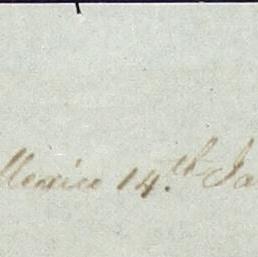 Mexico 14.th Ja